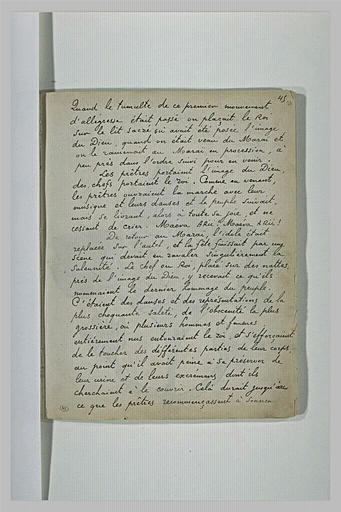 45
Quand le tumulte de ce premier mouvement
d'allegresse était passé on plaçait le Roi
sur le lit sacré où avait été posée l'image
du Dieu, quand on était venu du Marai et
on le ramenait au Marai en procession, à
peu près dans l'ordre suivi pour en venir.
Les prêtres portaient l'image du Dieu,
des chefs portaient le roi. Comme en venant,
les prêtres ouvraient la marche avec leur
musique et leurs danses et le peuple suivait,
mais se livrant, alors à toute sa joie, et ne
cessant de crier, Maeva ARii! Maeva ARii!
De retour au Marai, l'idole était
replacée sur l'autel, et la fête finissait par une
scène qui devrait en ravaler singulièrement la
solennité. Le chef ou Roi, placé sur des nattes,
près de l'image du Dieu, y recevait ce qu'ils
nommaient le dernier hommage du peuple.
C'étaient des danses et des représentations de la
plus choquante saleté, de l'obscenité la plus
grossière, où plusieurs hommes et femmes
entièrement nus entouraient le roi, et s'efforçaient
de le toucher des différentes parties de leur corps,
au point qu'il avait peine à se préserver de
leur urine et de leurs excremens, dont ils
cherchaient à le couvrir. Celà durait jusqu'à ce
ce que les prêtres recommençassent à sonner